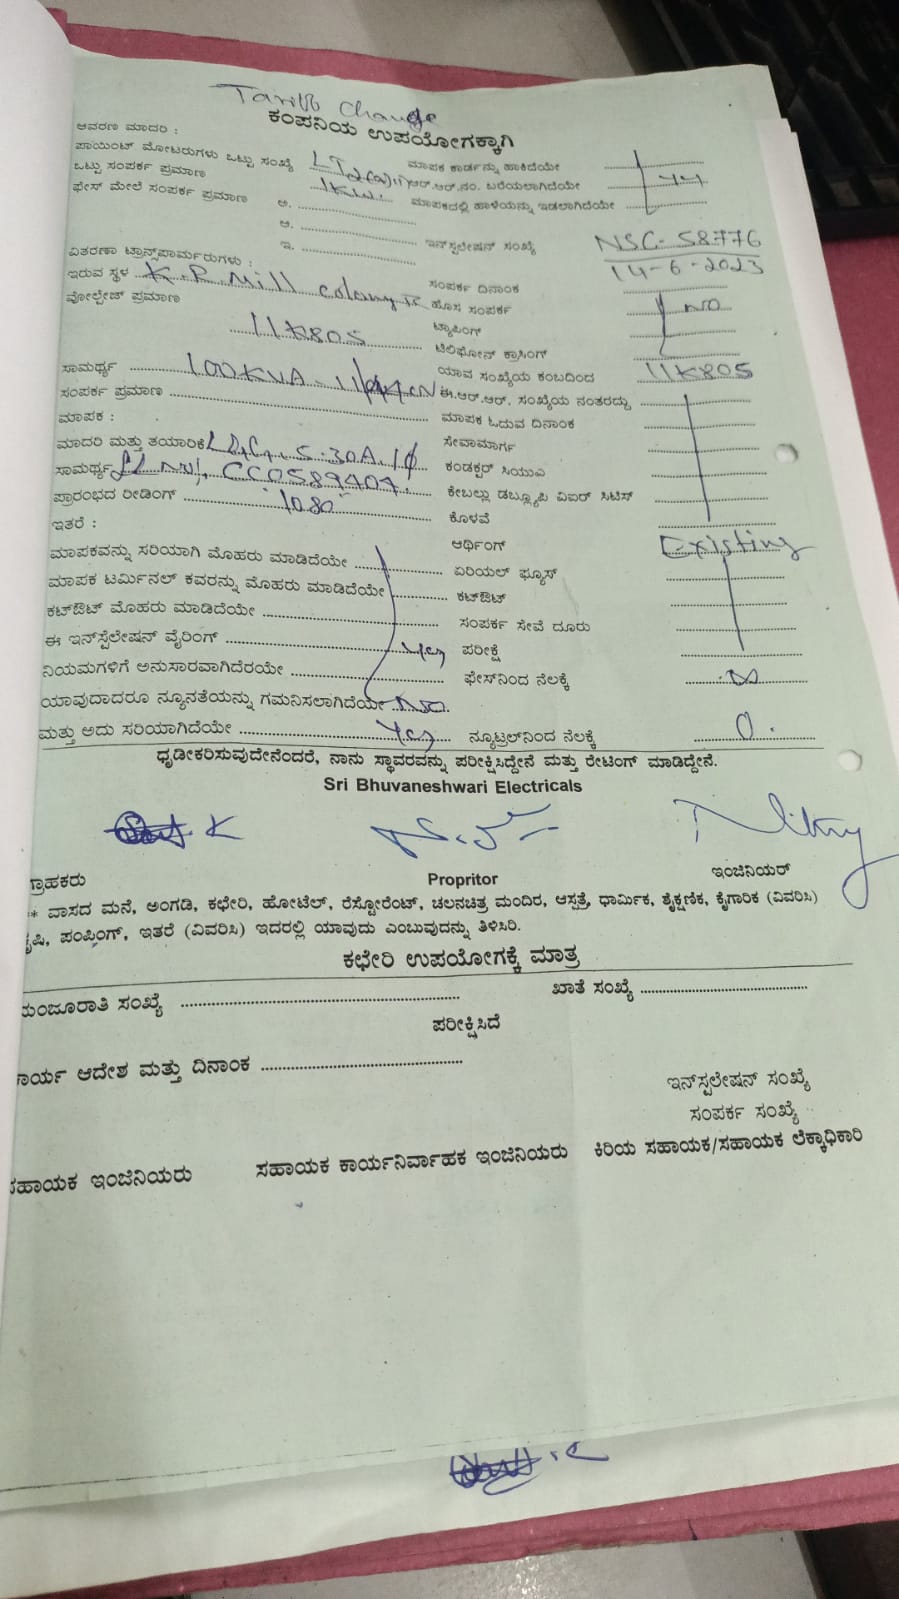 Tariff Change
ಕಂಪನಿಯ ಉಪಯೋಗಕ್ಕಾಗಿ
ಆವರಣ ಮಾದರಿ :
ಪಾಯಿಂಟ್ ಮೋಟರುಗಳು ಒಟ್ಟು ಸಂಖ್ಯೆ LT2(a)(ii) ಮಾಪಕ ಕಾರ್ಡನ್ನು ಹಾಕಿದೆಯೇ
ಒಟ್ಟು ಸಂಪರ್ಕ ಪ್ರಮಾಣ 1KW. ಆರ್.ಆರ್.ನಂ. ಬರೆಯಲಾಗಿದೆಯೇ
ಫೇಸ್ ಮೇಲೆ ಸಂಪರ್ಕ ಪ್ರಮಾಣ ಅ. ಮಾಪಕದಲ್ಲಿ ಹಾಳೆಯನ್ನು ಇಡಲಾಗಿದೆಯೇ
ಆ.
ಇ. ಇನ್‌ಸ್ಟಲೇಷನ್ ಸಂಖ್ಯೆ NSC-58776
ವಿತರಣಾ ಟ್ರಾನ್ಸ್‌ಫಾರ್ಮರುಗಳು : 14-6-2023
ಇರುವ ಸ್ಥಳ K.R Mill colony ಸಂಪರ್ಕ ದಿನಾಂಕ
ವೋಲ್ಟೇಜ್ ಪ್ರಮಾಣ ಹೊಸ ಸಂಪರ್ಕ NO
11K805 ಟ್ಯಾಪಿಂಗ್
ಟೆಲಿಫೋನ್ ಕ್ರಾಸಿಂಗ್
ಸಾಮರ್ಥ್ಯ 100KVA ಯಾವ ಸಂಖ್ಯೆಯ ಕಂಬದಿಂದ 11K805
ಸಂಪರ್ಕ ಪ್ರಮಾಣ ಈ.ಆರ್.ಆರ್. ಸಂಖ್ಯೆಯ ನಂತರದ್ದು
ಮಾಪಕ : ಮಾಪಕ ಓದುವ ದಿನಾಂಕ
ಮಾದರಿ ಮತ್ತು ತಯಾರಿಕೆ L&G, 5-30A, 1φ ಸೇವಾಮಾರ್ಗ
ಸಾಮರ್ಥ್ಯ CC0589407. ಕಂಡಕ್ಟರ್ ಸಿಯುಎ
ಪ್ರಾರಂಭದ ರೀಡಿಂಗ್ 1080 ಕೇಬಲ್ಲು ಡಬ್ಲ್ಯೂಪಿ ವಿಐರ್ ಸಿಟಿಸ್
ಇತರೆ : ಕೊಳವೆ
ಮಾಪಕವನ್ನು ಸರಿಯಾಗಿ ಮೊಹರು ಮಾಡಿದೆಯೇ ಆರ್ಥಿಂಗ್ Existing
ಮಾಪಕ ಟರ್ಮಿನಲ್ ಕವರನ್ನು ಮೊಹರು ಮಾಡಿದೆಯೇ ಏರಿಯಲ್ ಫ್ಯೂಸ್
ಕಟ್‌ಔಟ್ ಮೊಹರು ಮಾಡಿದೆಯೇ ಕಟ್‌ಔಟ್
ಈ ಇನ್‌ಸ್ಟೆಲೇಷನ್ ವೈರಿಂಗ್ ಸಂಪರ್ಕ ಸೇವೆ ದೂರು
ನಿಯಮಗಳಿಗೆ ಅನುಸಾರವಾಗಿದೆರಯೇ Yes ಪರೀಕ್ಷೆ
ಯಾವುದಾದರೂ ನ್ಯೂನತೆಯನ್ನು ಗಮನಿಸಲಾಗಿದೆಯೇ NO. ಫೇಸ್‌ನಿಂದ ನೆಲಕ್ಕೆ ∞
ಮತ್ತು ಅದು ಸರಿಯಾಗಿದೆಯೇ Yes ನ್ಯೂಟ್ರಲ್‌ನಿಂದ ನೆಲಕ್ಕೆ 0.
ಧೃಡೀಕರಿಸುವುದೇನೆಂದರೆ, ನಾನು ಸ್ಥಾವರವನ್ನು ಪರೀಕ್ಷಿಸಿದ್ದೇನೆ ಮತ್ತು ರೇಟಿಂಗ್ ಮಾಡಿದ್ದೇನೆ.
Sri Bhuvaneshwari Electricals
ಗ್ರಾಹಕರು Propritor ಇಂಜಿನಿಯರ್
** ವಾಸದ ಮನೆ, ಅಂಗಡಿ, ಕಛೇರಿ, ಹೋಟೆಲ್, ರೆಸ್ಟೋರೆಂಟ್, ಚಲನಚಿತ್ರ ಮಂದಿರ, ಆಸ್ಪತ್ರೆ, ಧಾರ್ಮಿಕ, ಶೈಕ್ಷಣಿಕ, ಕೈಗಾರಿಕ (ವಿವರಿಸಿ)
ಕೃಷಿ, ಪಂಪಿಂಗ್, ಇತರೆ (ವಿವರಿಸಿ) ಇದರಲ್ಲಿ ಯಾವುದು ಎಂಬುವುದನ್ನು ತಿಳಿಸಿರಿ.
ಕಛೇರಿ ಉಪಯೋಗಕ್ಕೆ ಮಾತ್ರ
ಮಂಜೂರಾತಿ ಸಂಖ್ಯೆ ಖಾತೆ ಸಂಖ್ಯೆ
ಪರೀಕ್ಷಿಸಿದೆ
ಕಾರ್ಯ ಆದೇಶ ಮತ್ತು ದಿನಾಂಕ
ಇನ್‌ಸ್ಟಲೇಷನ್ ಸಂಖ್ಯೆ
ಸಂಪರ್ಕ ಸಂಖ್ಯೆ
ಸಹಾಯಕ ಇಂಜಿನಿಯರು ಸಹಾಯಕ ಕಾರ್ಯನಿರ್ವಾಹಕ ಇಂಜಿನಿಯರು ಕಿರಿಯ ಸಹಾಯಕ/ಸಹಾಯಕ ಲೆಕ್ಕಾಧಿಕಾರಿ